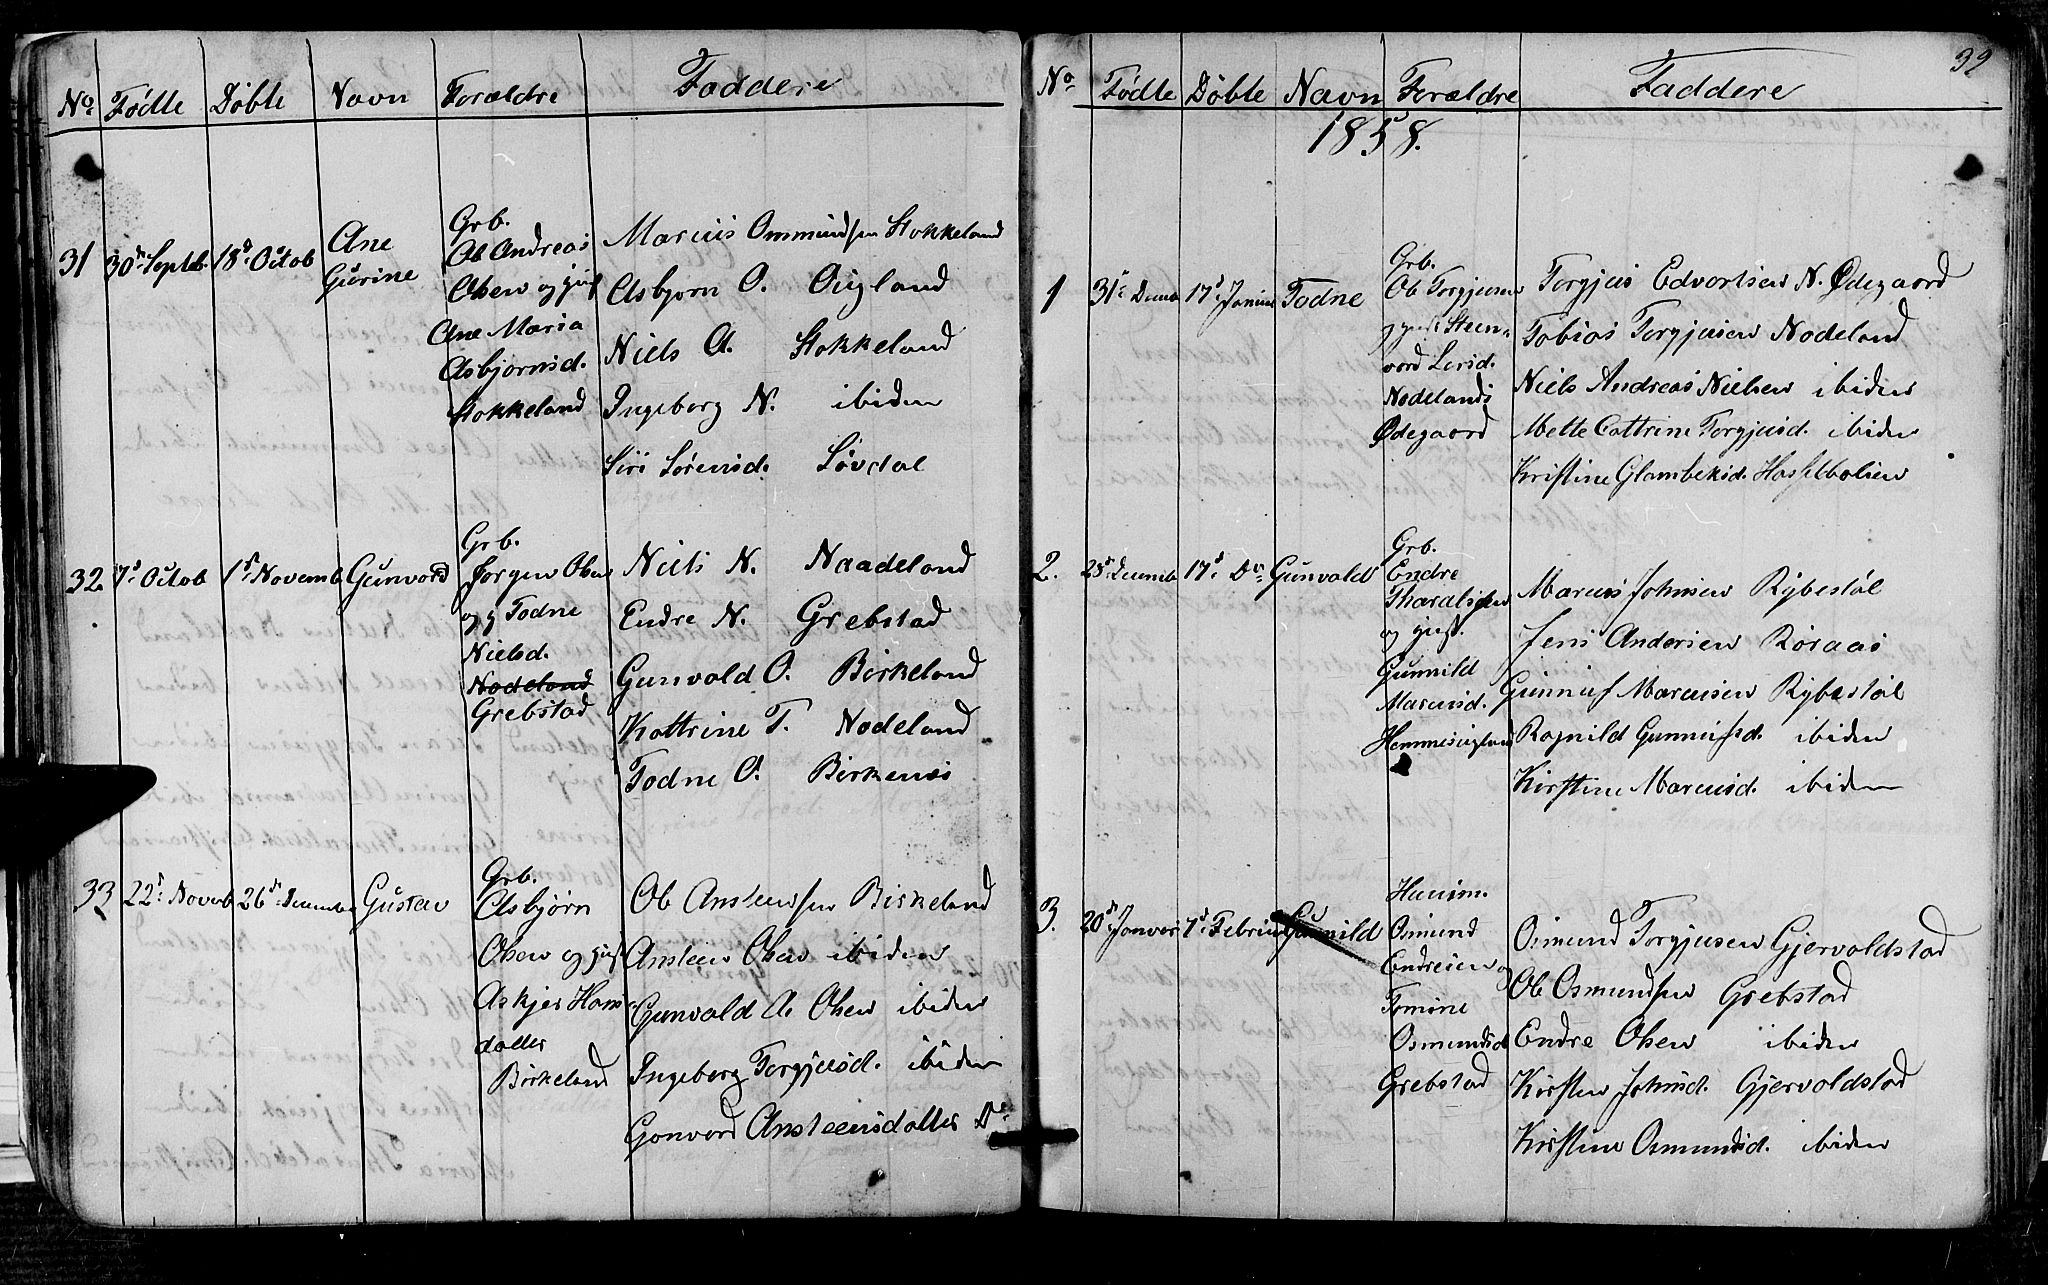 No Fødte Døbte Navn Forældre Faddere
31 30d Septb. 18d Octob Ane Gurine
Grb.
Ole Andreas
Olsen og
Ane Maria
Asbjørnsd.
Stokkeland
Marcus Ommundsen Stokkeland
Asbjørn O. Oigland
Niels A. Stokkeland
Ingeborg N. ibiden
Siri Sørensd. Løvdal
32. 7d Octob 1d Novemb Gunvord
Grb.
Jørgen Olsen
og g Todne
Nielsd.
Nodeland
Grebstad
Niels N. Naadeland
Endre N. Grebstad
Gunvald O. Birkeland
Kattrine T. Nodeland
Todne O. Birkenes
33 22d Novemb 26d December Gustav
Grb.
Asbjørn
Olsen og
Askjer Ham
datter
Birkeland
Ole Ansteensen Birkeland
Ansteen Olsen ibiden
Gunvald A. Olsen ibiden
Ingeborg Torgjusd. ibiden
Gonvord Ansteensdatter Do
39
No Fødte Døbte Navn Forældre Faddere
1858.
1 31d Decemb 17d Januar Todne
Grb.
Ole Torgjusen
Steen-
vord Larsd.
Nodelands
Ødegaard
Torgjus Edvartsen N. Ødegaard
Tobias Torgjusen Nodeland
Niels Andreas Nielsen ibiden
Mette Cattrine Torgjusd. ibiden
Kristine Glambeksd. Hasselbolien
2. 25d Decemb 17d Do Gunvald
Grb.
Endre
Tharalsen
og
Gunnild
Marcusd.
Marcus Johnsen Rybestøl
Jens Andersen Røraas
Gunnuf Marcusen Rybestøl
Ragnild Gunnufsd. ibiden
Kirstine Marcusd. ibiden
3. 20d Januar 7d Februar Gunnild
Huusm.
Osmund
Endresen og
Tomine
Osmundsd
Grebstad
Osmund Torgjusen Gjervoldstad
Ole Osmundsen Grebstad
Endre Olsen ibiden
Kirsten Johnsd. Gjervoldstad
Kirstine Osmundsd. ibiden